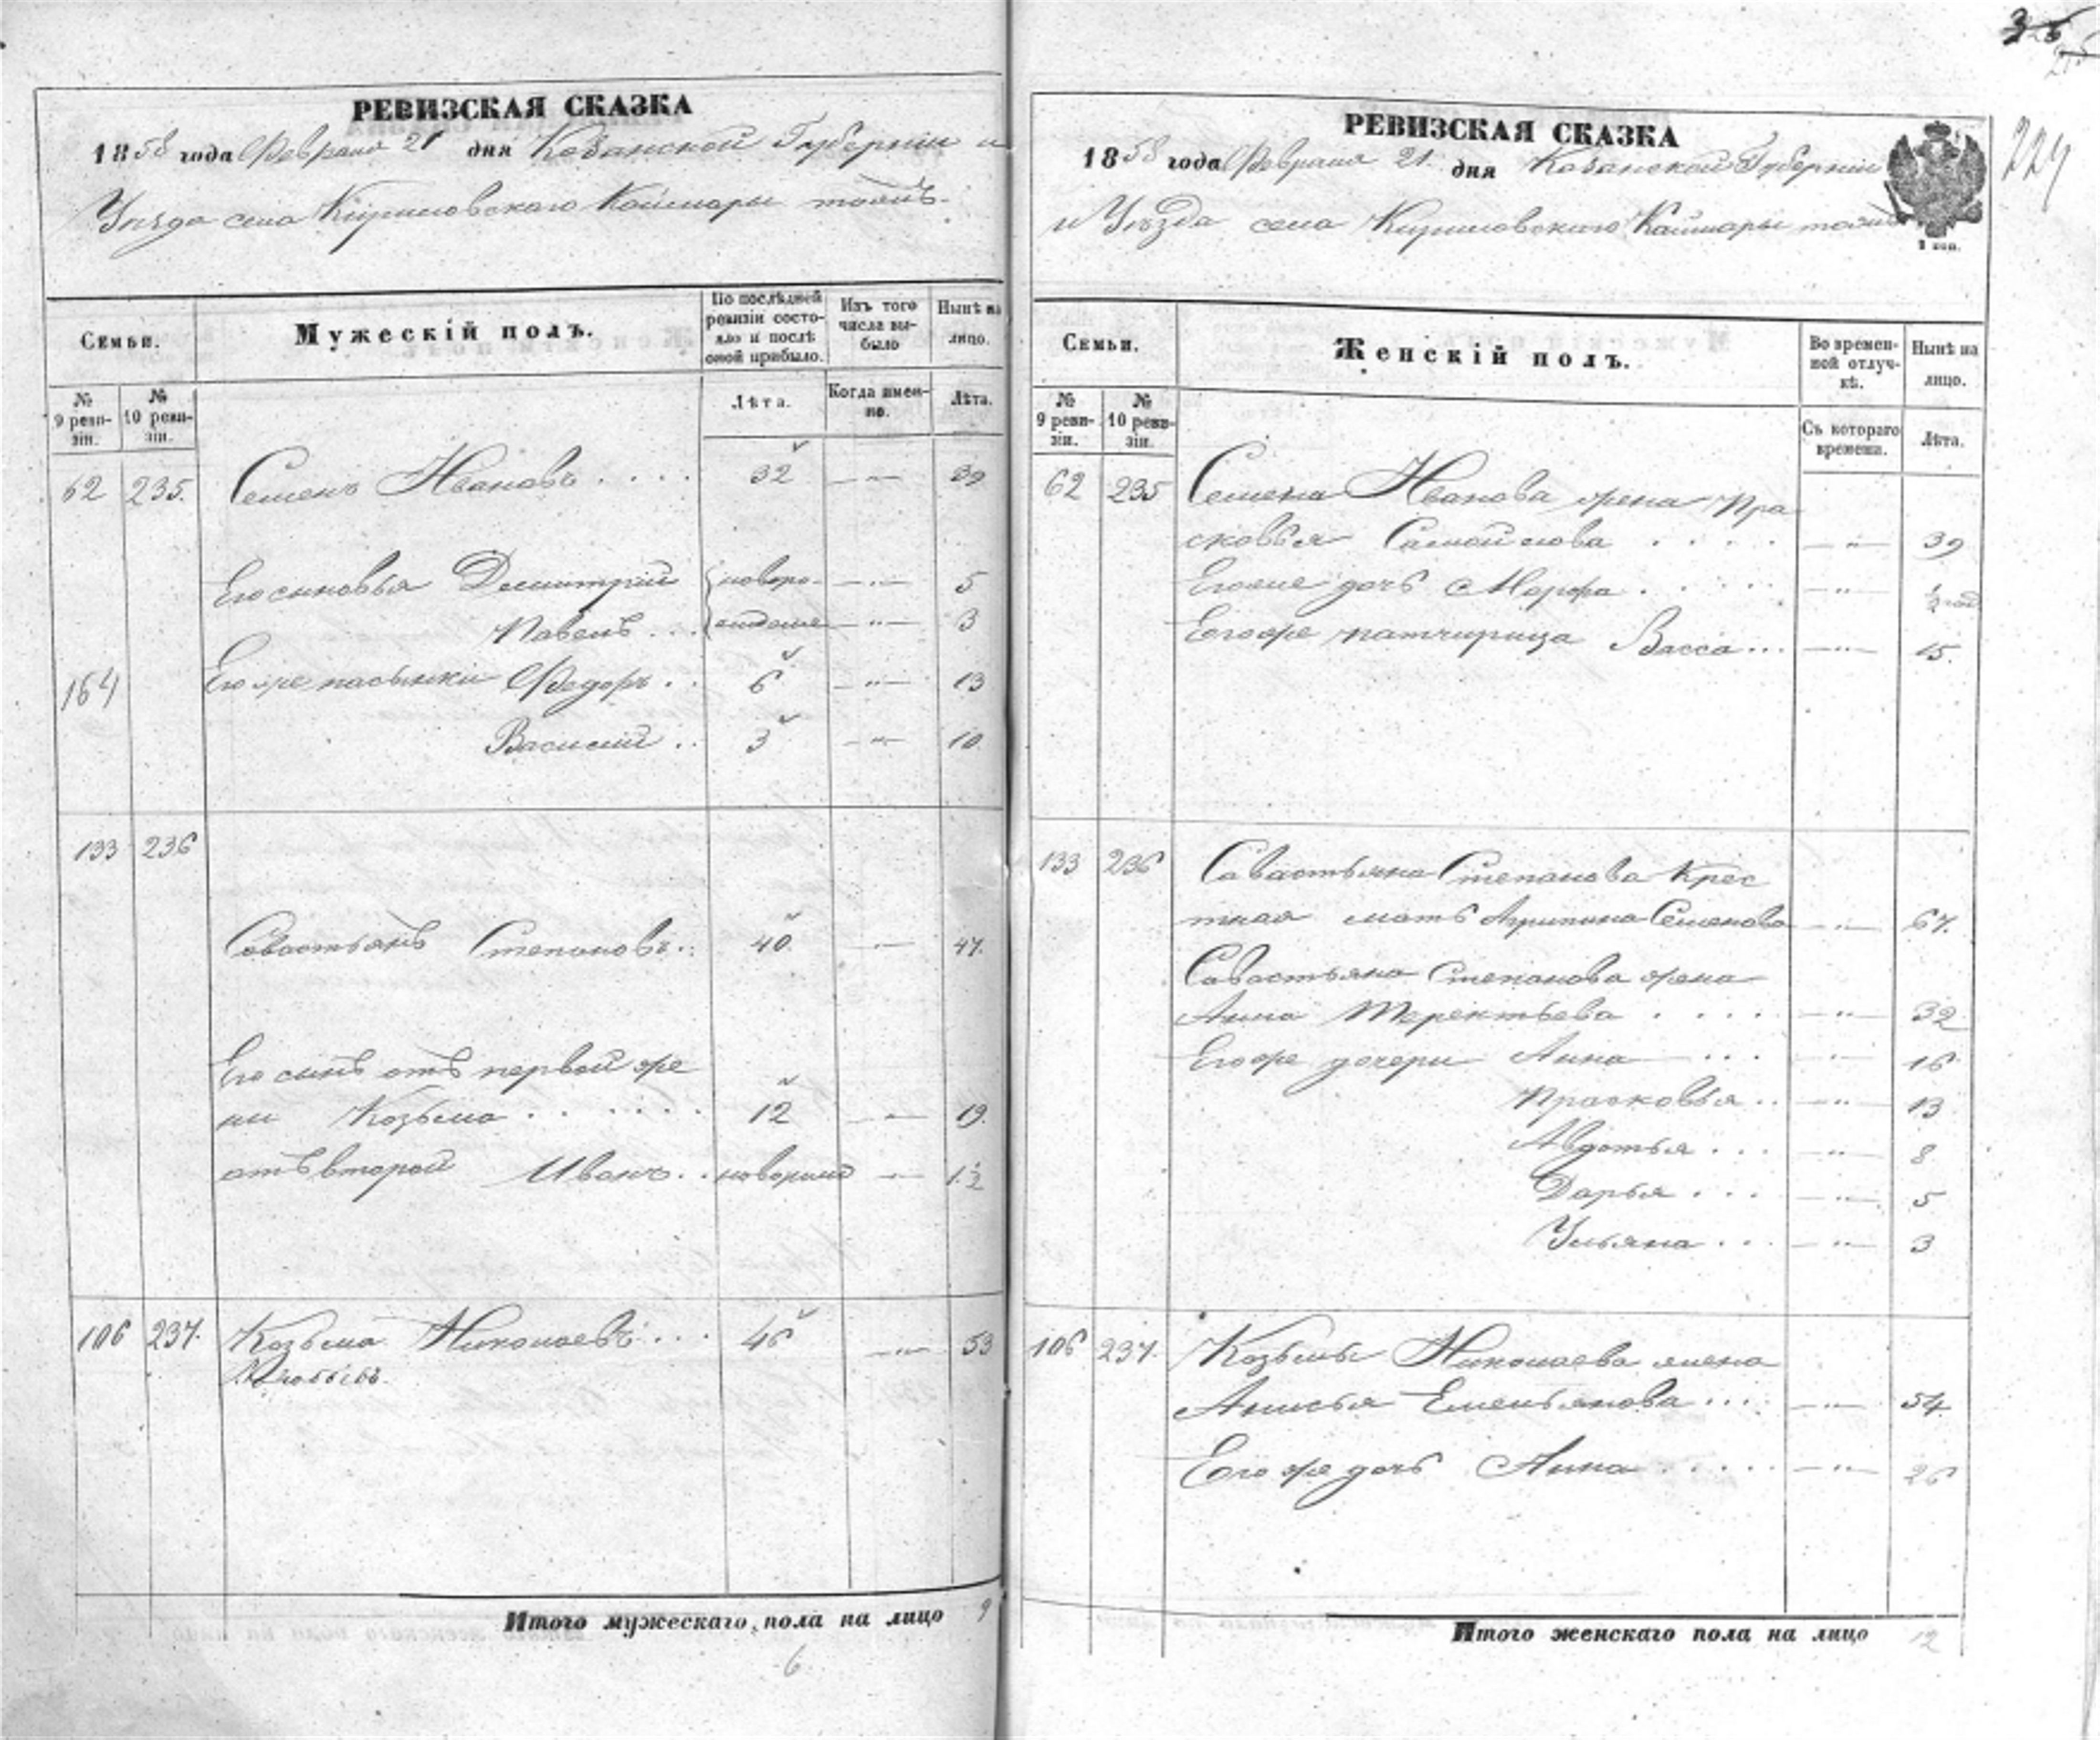 РЕВИЗСКАЯ СКАЗКА
1858 года Февраля 21 дня Казанской Губерніи и
Уѣзда села Кириловскаго Каймары тожъ.
Семьи.
Мужескій полъ.
По послѣдней ревизіи состояло и послѣ оной прибыло.
Изъ того числа выбыло
Нынѣ на лицо.
№ 9 ревизіи.
№ 10 ревизіи.
Лѣта.
Когда именно.
Лѣта.
62 235. Семенъ Ивановъ . . . . 32 — " — 39
Его сыновья Дмитрій новоро- — " — 5
Павелъ . . . — " — 3
164 Его же пасынки Федоръ . . 6 — " — 13
Василій . . 3 — " — 10.
133 236
Савастьянъ Степановъ . . 40. — 47.
Его сынъ отъ первой же
ны Козьма . . . . . . 12 — 19.
отъ второй Иванъ . . — 1 1/2
106 237. Козьма Николаевъ . . . 46 — " — 53
Итого мужескаго пола на лицо 9
6
РЕВИЗСКАЯ СКАЗКА
1858 года Февраля 21. дня Казанской Губерніи
и Уѣзда села Кириловскаго Каймары тожъ
224
Семьи.
Женскій полъ.
Во временной отлучкѣ.
Нынѣ на лицо.
№ 9 ревизіи.
№ 10 ревизіи.
Съ котораго времени.
Лѣта.
62 235 Семена Иванова жена Пра
сковья Самойлова . . . . — " — 39
Его же дочь Марфа . . . . . — " — 1/2 год
Его же патчирица Васса . . . — " — 15.
133 236 Савастьяна Степанова Крес
тная мать Агрипина Семенова — " — 67.
Савастьяна Степанова жена
Анна Терентьева . . . . — " — 32
Его же дочери Анна . . . — " — 16
Прасковья . . — " — 13
Авдотья . . . — " — 8
Дарья . . . — " — 5
Ульяна . . . — " — 3
106 237. Козьмы Николаева жена
Анисья Емельянова . . . — " — 54.
Его же дочь Анна . . . . . — " — 26
Итого женскаго пола на лицо 12